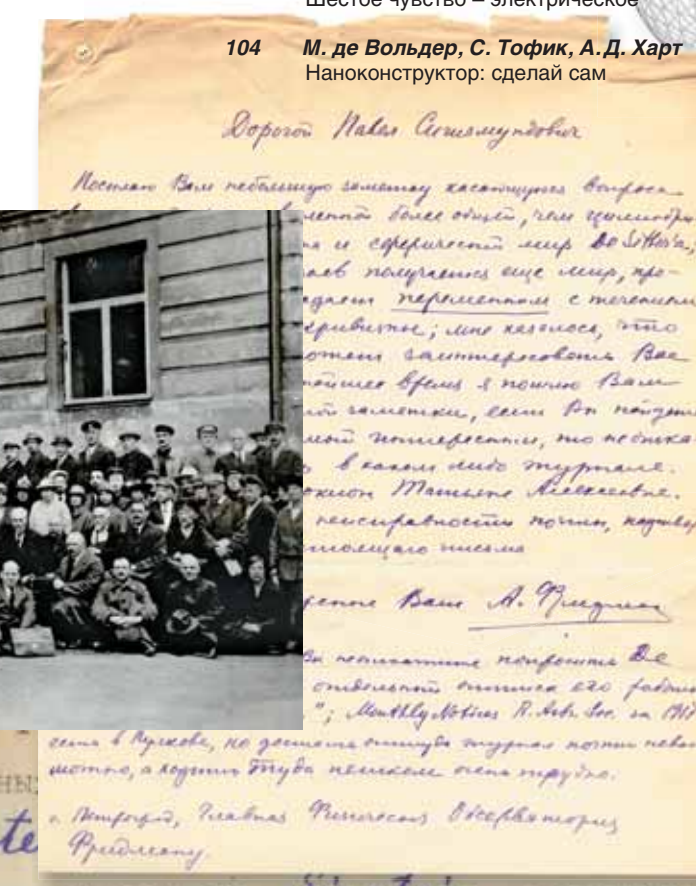 Шестое чувство – электрическое
104 М. де Вольдер, С. Тофик, А.Д. Харт
Наноконструктор: сделай сам
Дорогой Павел Сигизмундович
Посылаю Вам небольшую заметку касающуюся вопроса
более общей, чем цилиндри
и сферический мир De Sitter'а;
получается еще мир, про-
переменным с течением
кривизны; мне казалось, что
заинтересовать Вас
время я пошлю Вам
заметки, если Вы найдете
интересным, то
в каком либо журнале.
Татьяне Алексеевне.
неисправности почты,
письма
Ваш А. Фридман
попросить De
его работы
"; Monthly Notices R. Astr. Soc. за 1917
есть в Пулкове, но достать оттуда журнал почти нево
можно, а ходить туда пешком очень трудно.
Петроград, Главная Физическая Обсерватория
Фридману.
ны
te